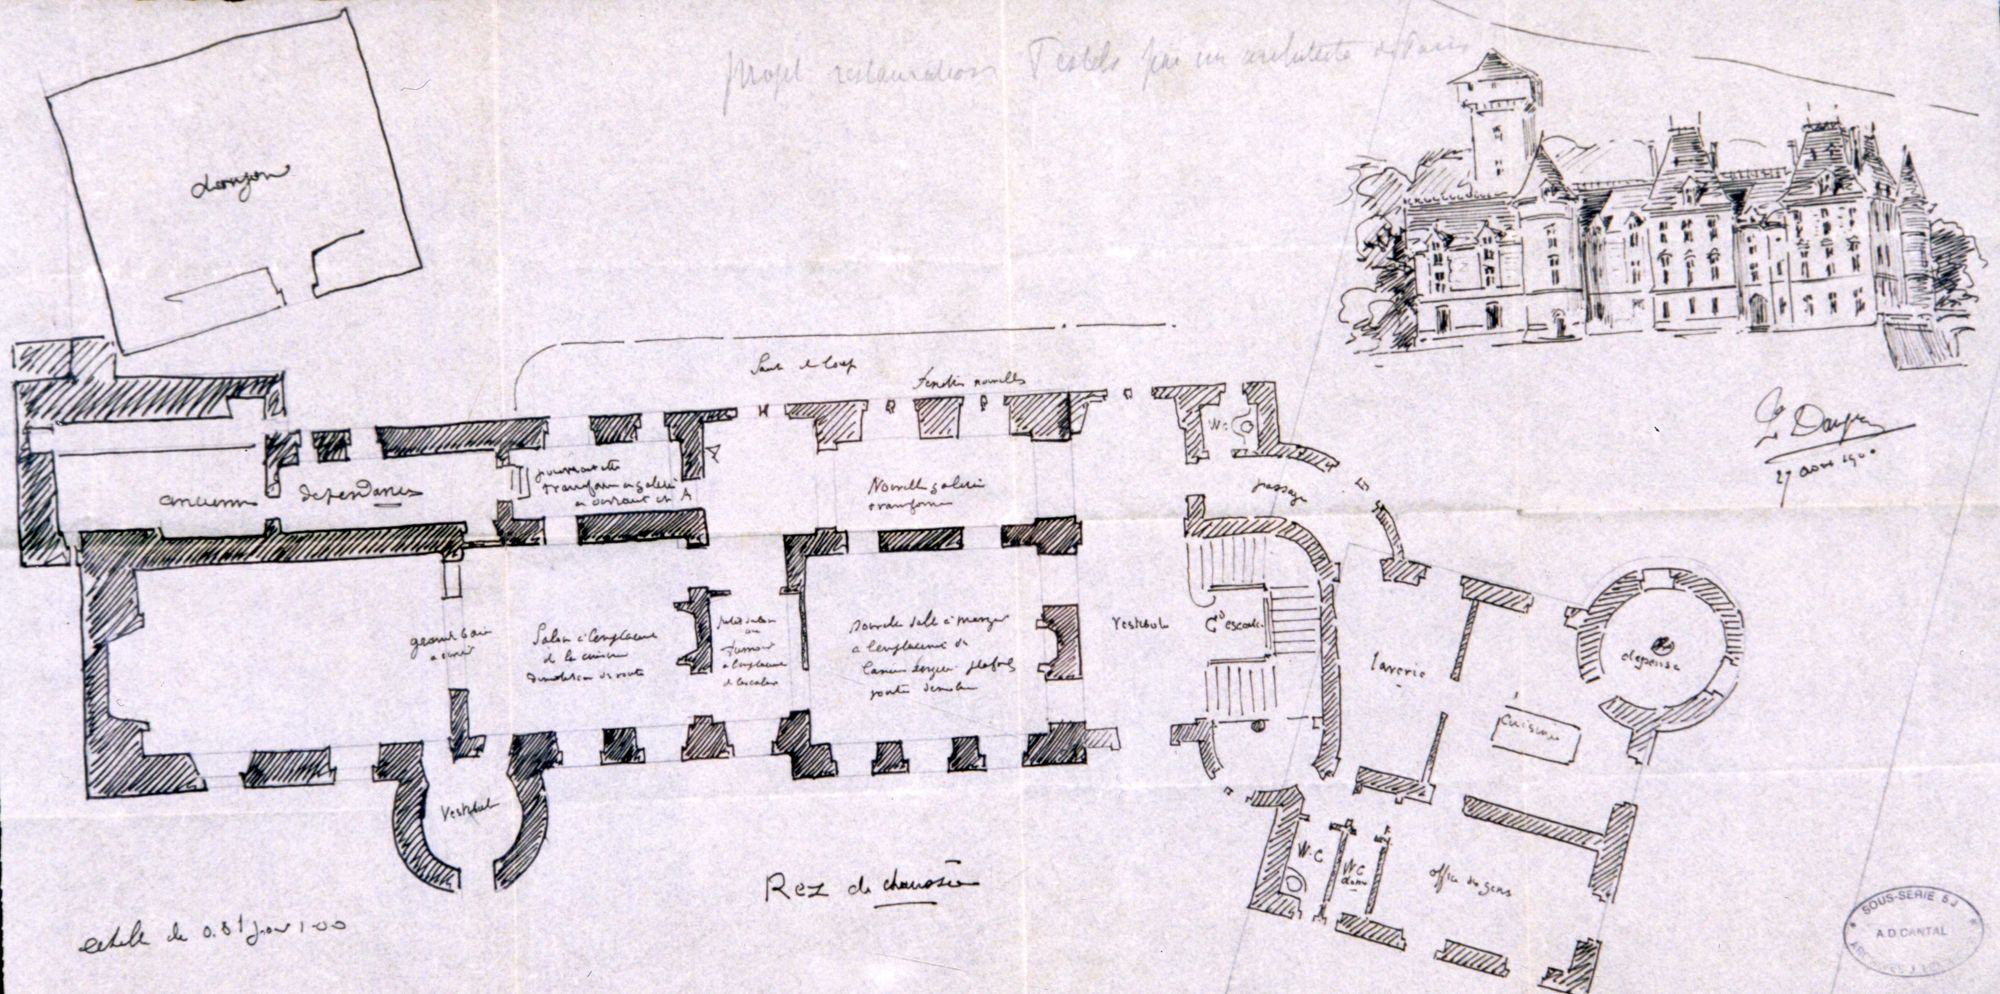 projet restauration par un architecte de Paris
donjon
Saut de loup
Fenêtres nouvelles
W.C
passage
anciennes dépendances
pourrait être
transformé en galerie
en ouvrant en A
A
Nouvelle galerie
transformée
grande baie
a ouvrir
Salon à l'emplacement
de la cuisine
démolition de voute
petit salon
ou
fumoir
a l'emplacement
de l'escalier
Nouvelle salle à manger
a l'emplacement de
voute démolie
Vestibule
Gd escalier
laverie
Cuisine
depense
Vestibule
W.C
WC
office des gens
Rez de chaussée
echelle de 0.01 pour 1.00
27 aout
SOUS-SERIE 5 J
A.D. CANTAL